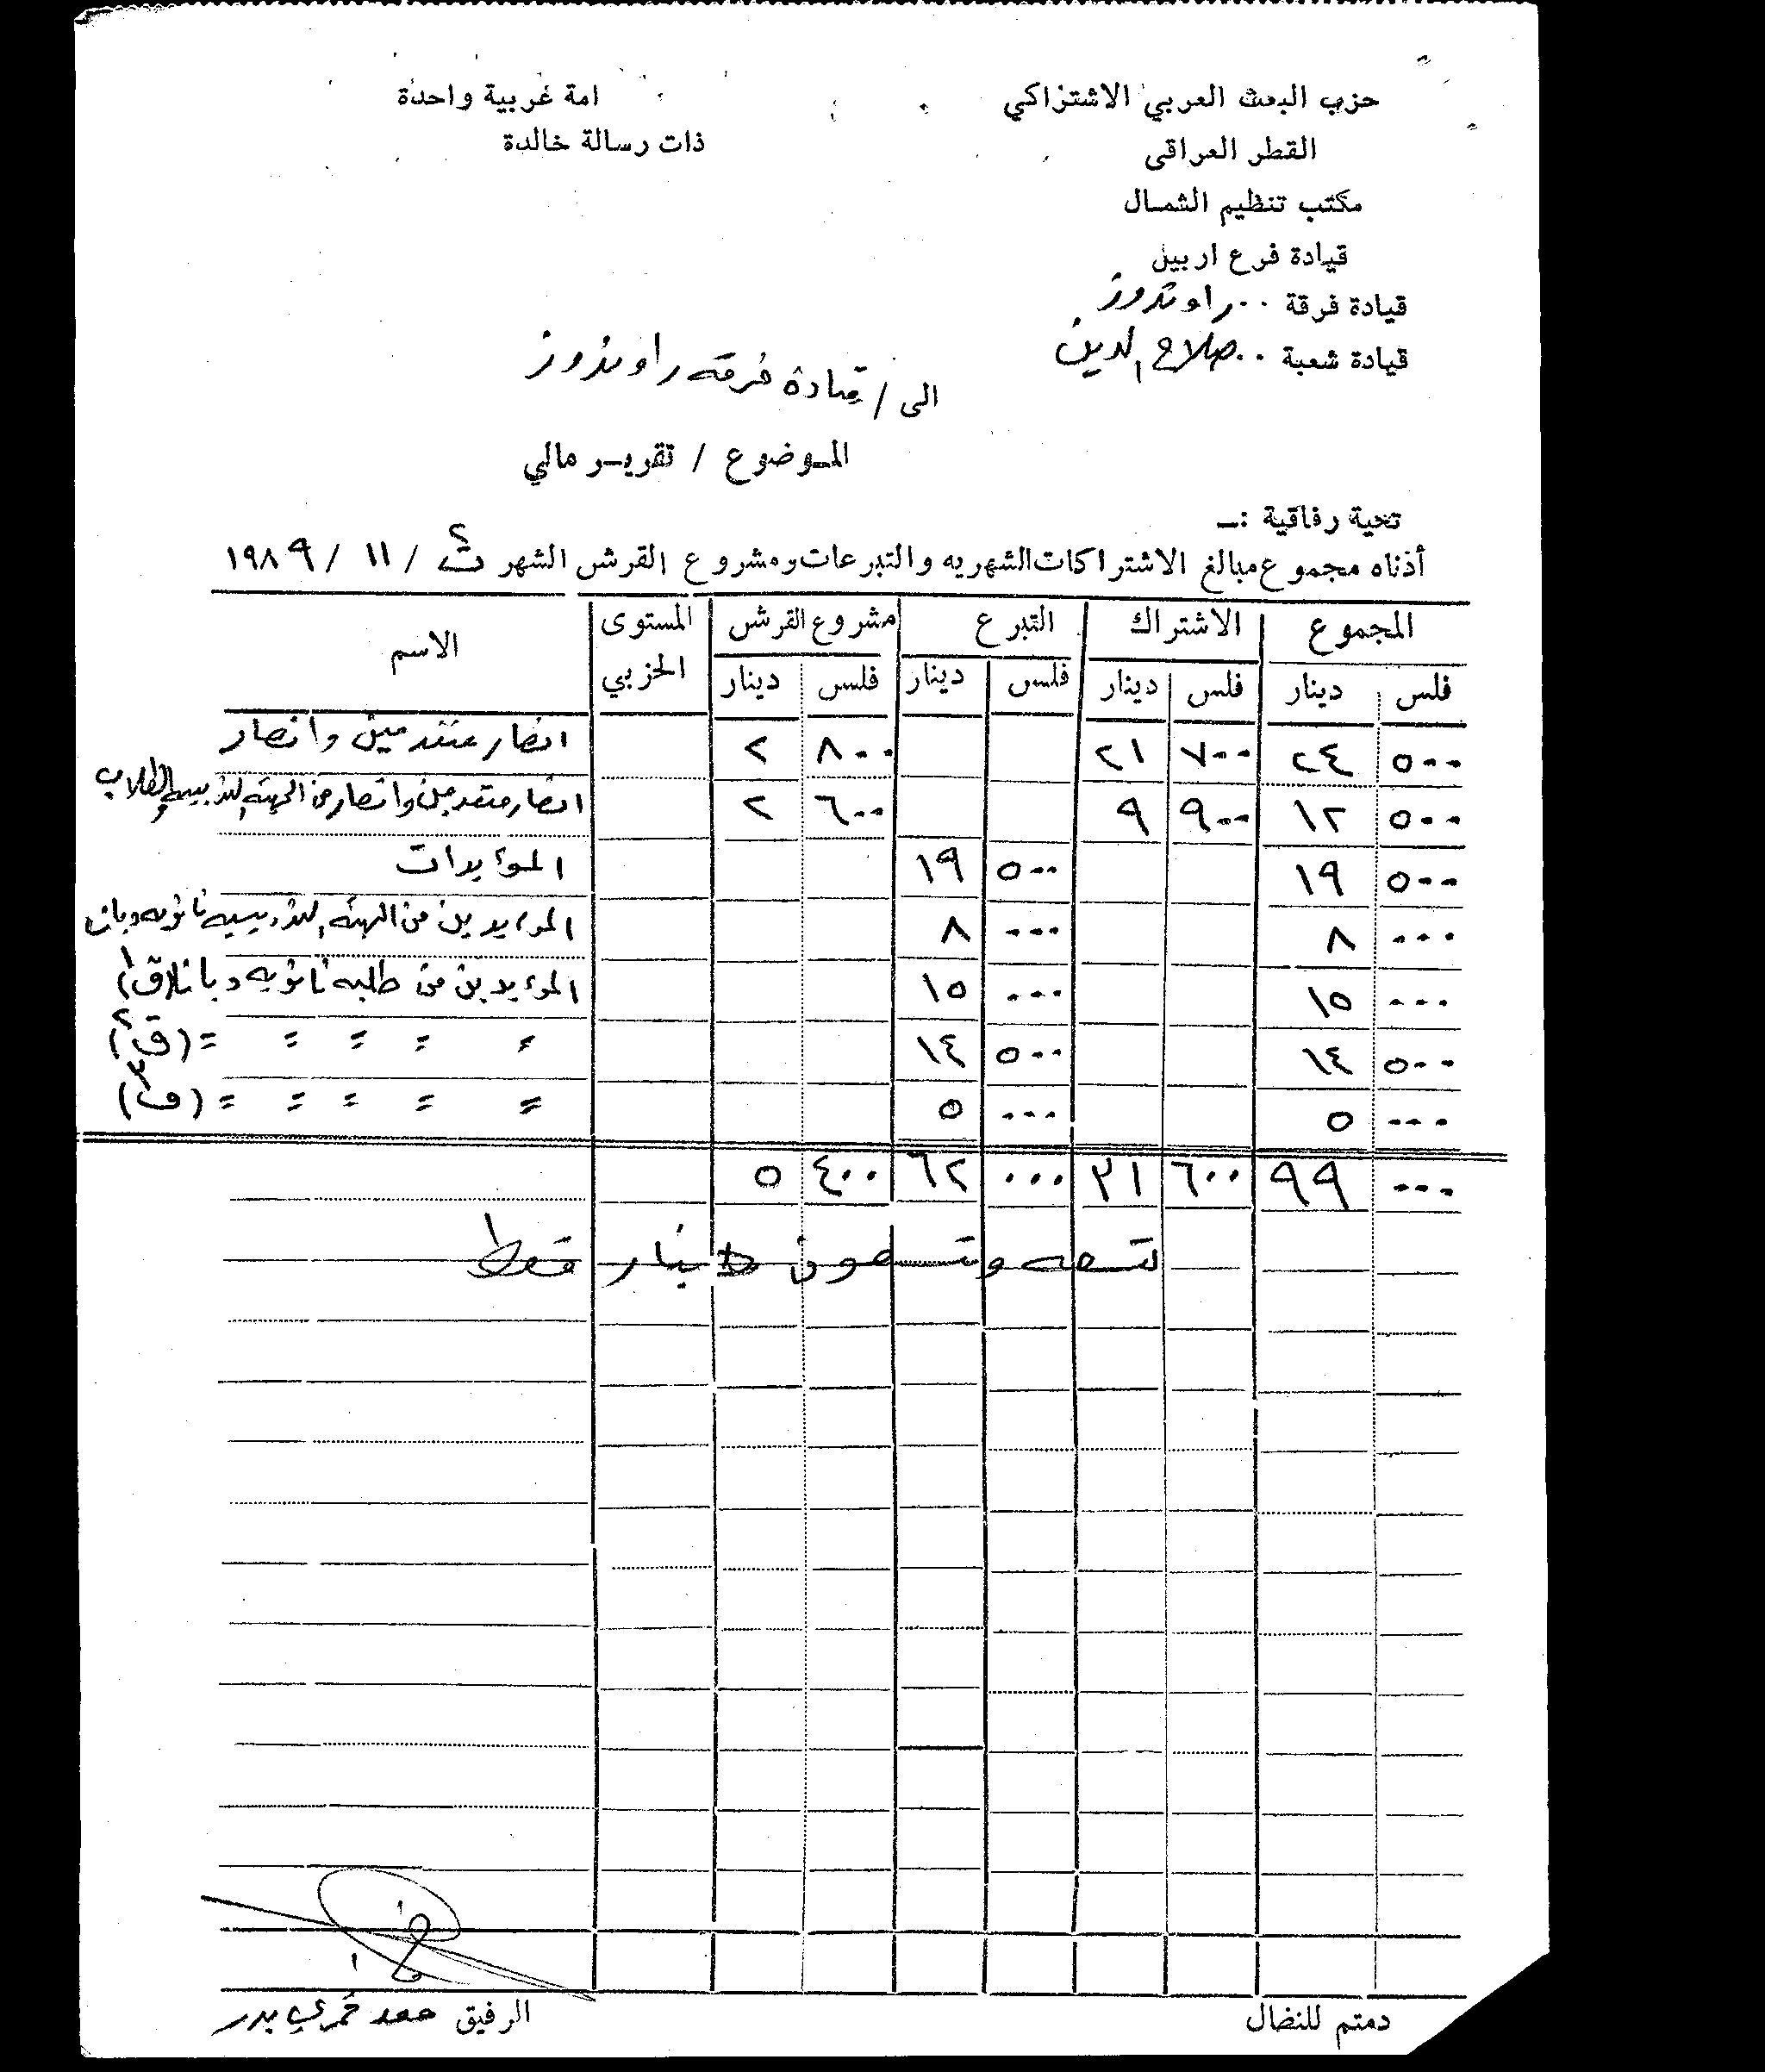 حزب البعث العربي الاشتراكي
القطر العراقي
مكتب تنظيم الشمال
قيادة فرع اربيل
قيادة فرقة ٠٠ راوندوز
قيادة شعبة ٠٠ صلاح الدين
امة عربية واحدة
ذات رسالة خالدة
الى / قيادة فرقة راوندوز
الموضوع / تقرير مالي
تحية رفاقية :ـ
أدناه مجموع مبالغ الاشتراكات الشهريه والتبرعات ومشروع القرش الشهر ت٢ / ١١ / ١٩٨٩
المجموع الاشتراك التبرع مشروع القرش المستوى الحزبي الاسم
فلس دينار فلس دينار فلس دينار فلس دينار
٥٠٠ ٢٤ ٧٠٠ ٢١ ٨٠٠ ٢ انصار متقدمين وانصار
٥٠٠ ١٢ ٩٠٠ ٩ ٦٠٠ ٢ انصار متقدمين وانصار من الهيئه التدريسيه والطلاب
٥٠٠ ١٩ ٥٠٠ ١٩ المؤيدات
٠٠٠ ٨ ٠٠٠ ٨ المؤيدين من الهيئه التدريسيه ثانويه
٠٠٠ ١٥ ٠٠٠ ١٥ المؤيدين من طلبه ثانويه (ق١)
٥٠٠ ١٤ ٥٠٠ ١٤ = = = = = (ق٢)
٠٠٠ ٥ ٠٠٠ ٥ = = = = = (ق٣)
٠٠٠ ٩٩ ٦٠٠ ٣١ ٠٠٠ ٦٢ ٤٠٠ ٥
تسعه وتسعون دينار فقط
دمتم للنضال
الرفيق بدر